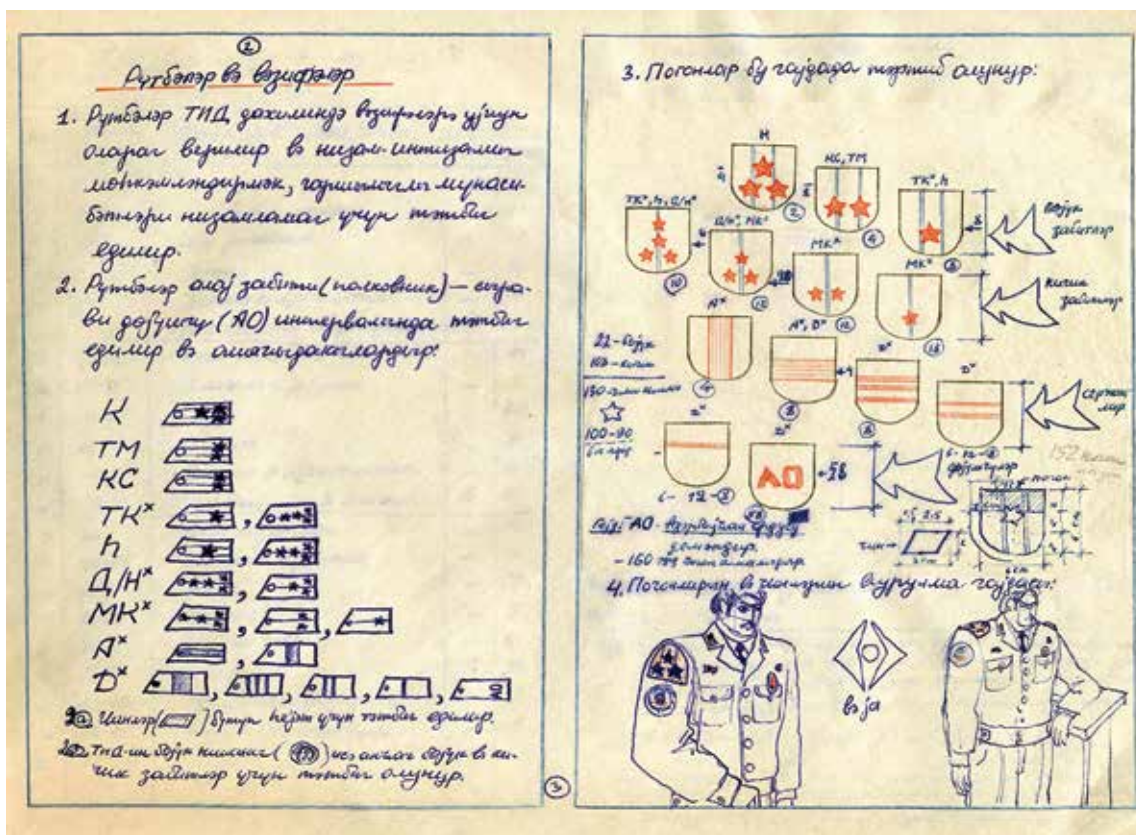 2
Рүтбәләр вә вәзифәләр
1. Рүтбәләр ТИД дахилиндә вәзифәләрә ујғун
олараг верилир вә низам-интизамы
мөһкәмләндирмәк, гаршылыглы мунаси-
бәтләри низамламаг үчүн тәтбиг
едилир.
2. Рүтбәләр алај забити (полковник) — сыра-
ви дөјүшчү (АО) интервалында тәтбиг
едилир вә ашағыдакылардыр:
К
ТМ
КС
ТКˣ
Һ
Д/Нˣ
МКˣ
Аˣ
Dˣ
а Чинләр ( ) бүтүн һејәт үчүн тәтбиг едилир.
ТИД-ин бөјүк нишаны ( ) исә анчаг бөјүк вә ки-
чик забитләр үчүн тәтбиг олунур.
3
3. Погонлар бу гајдада тәртиб олунур:
Н
КС, ТМ
ТКˣ, Һ
2
4
8
бөјүк
забитләр
МКˣ
МКˣ
10
12
12
кичик
забитләр
Аˣ
Аˣ, Dˣ
Dˣ
Dˣ
22-бөјүк
108-кичик
100-90
8
8
АО
дөјүшчүләр
погон
чин
АО - Азәрбајҹан Ордусу
демәкдир.
4. Погонларын вә чинләрин вурулма гајдасы:
вә ја